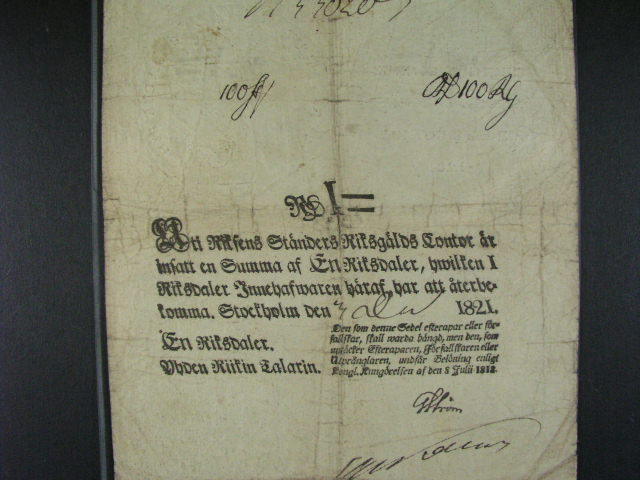 100
100
RS I=
Uti Riksens Ständers Riksgälds Contor är
insatt en Summa af En Riksdaler, hwilken I
Riksdaler Innehafwaren häraf har att återbe-
komma. Stockholm den 1821.
En Riksdaler.
Yhden Riikin Talarin.
Den som denne Sedel efterapar eller för-
falskar, skall warda hängd, men den, som
uptäcker Efteraparen, Förfalskaren eller
Utprånglaren, undfår Belöning enligt
Kongl. Kungörelsen af den 8 Julii 1812.